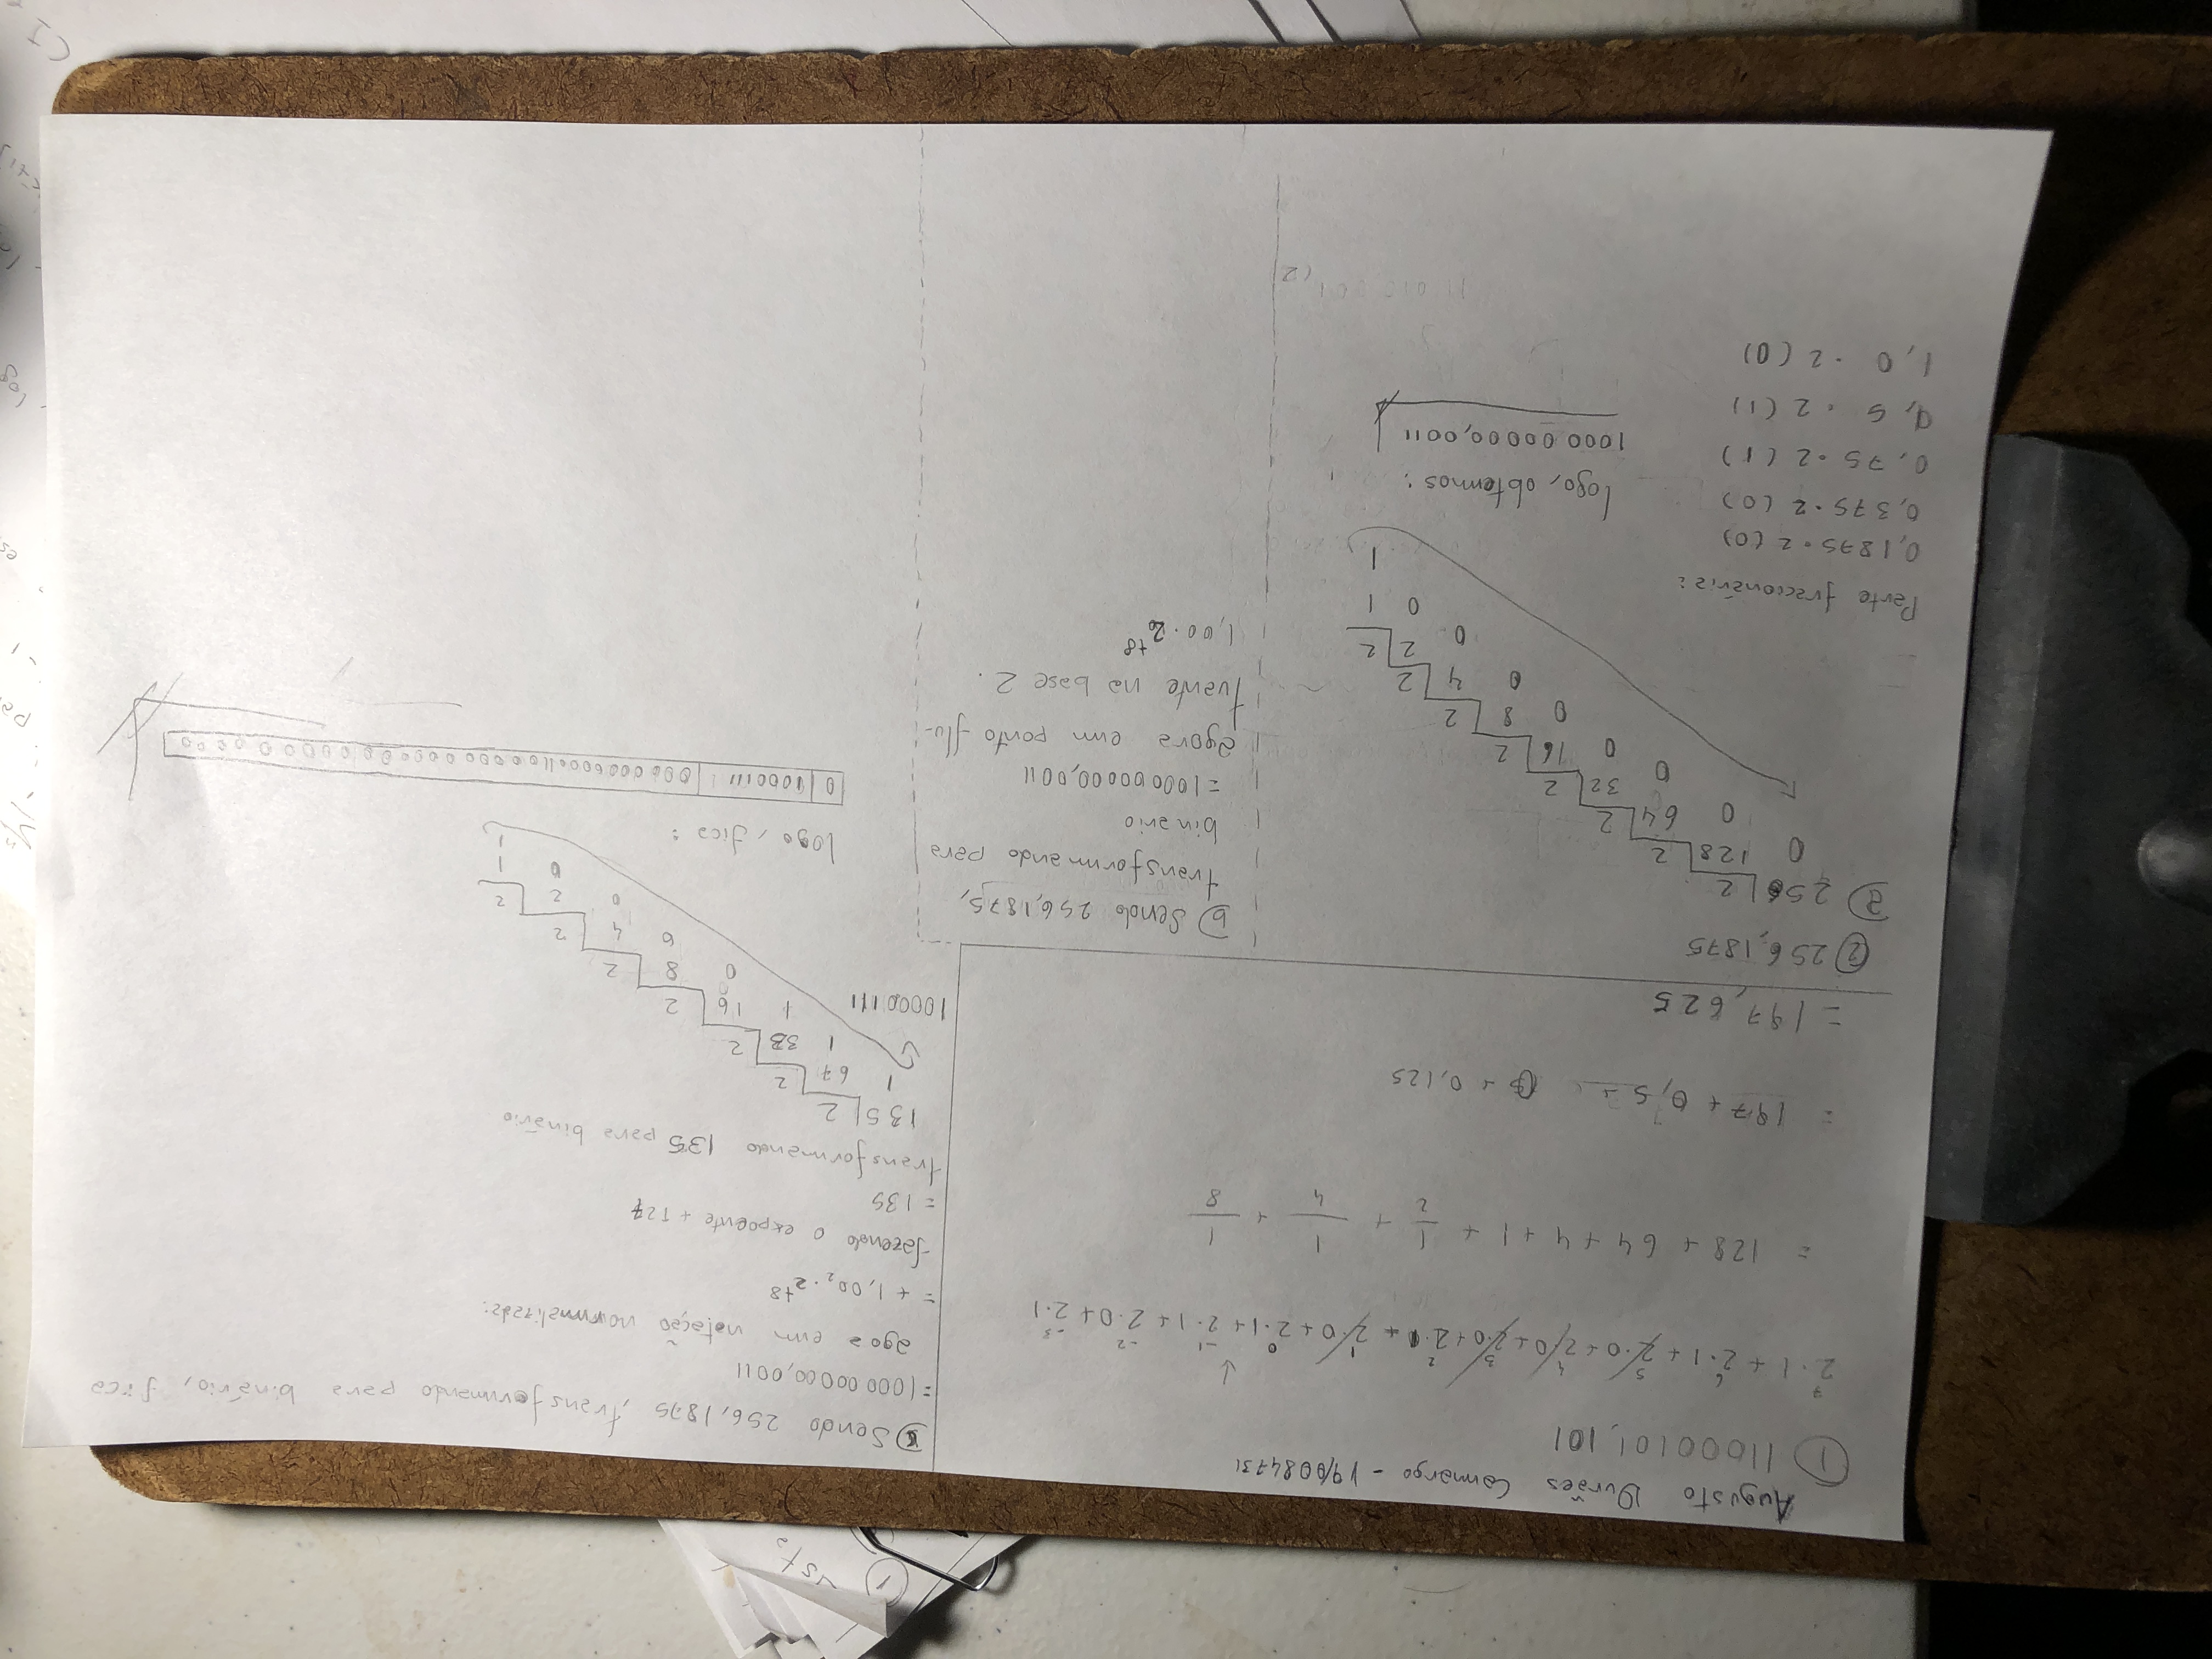 Augusto Durães Camargo - 19/0084731
① 11000101,101
2⁷·1 + 2⁶·1 + 2⁵·0 + 2⁴·0 + 2³·0 + 2²· + 2¹·0 + 2⁰·1 + 2⁻¹·1 + 2⁻²·0 + 2⁻³·1
= 128 + 64 + 4 + 1 + 1/2 + 1/4 + 1/8
= 197 + 0,5 + 0 + 0,125
= 197,625
② 256,1875
a) 256 | 2
0 128 | 2
0 64 | 2
0 32 | 2
0 16 | 2
0 8 | 2
0 4 | 2
0 2 | 2
0 1
1
Parte fracionária:
0,1875·2 (0)
0,375·2 (0)
0,75·2 (1)
0,5·2 (1)
1,0·2 (0)
logo, obtemos:
100000000,0011
b) Sendo 256,1875,
transformando para
binario
= 100000000,0011
agora em ponto flu-
tuante na base 2.
1,00·2⁺⁸
Sendo 256,1875, transformando para binário, fica
= 100000000,0011
agora em notação normalizada:
= +1,00₂·2⁺⁸
fazendo o expoente + 127
= 135
transformando 135 para binário
135 | 2
1 67 | 2
1 33 | 2
1 16 | 2
0 8 | 2
0 4 | 2
0 2 | 2
0 1
1
10000111
logo, fica:
0 | 10000111 | 00000000001100000000000